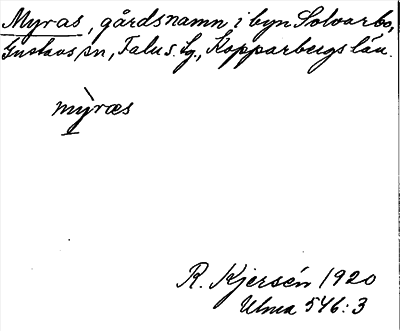 Myras, gårdsnamn i byn Solvarbo,
Gustavs sn, Falu s. lg., Kopparbergs län.
mỳræs
R. Kjersén 1920
Ulma 546:3